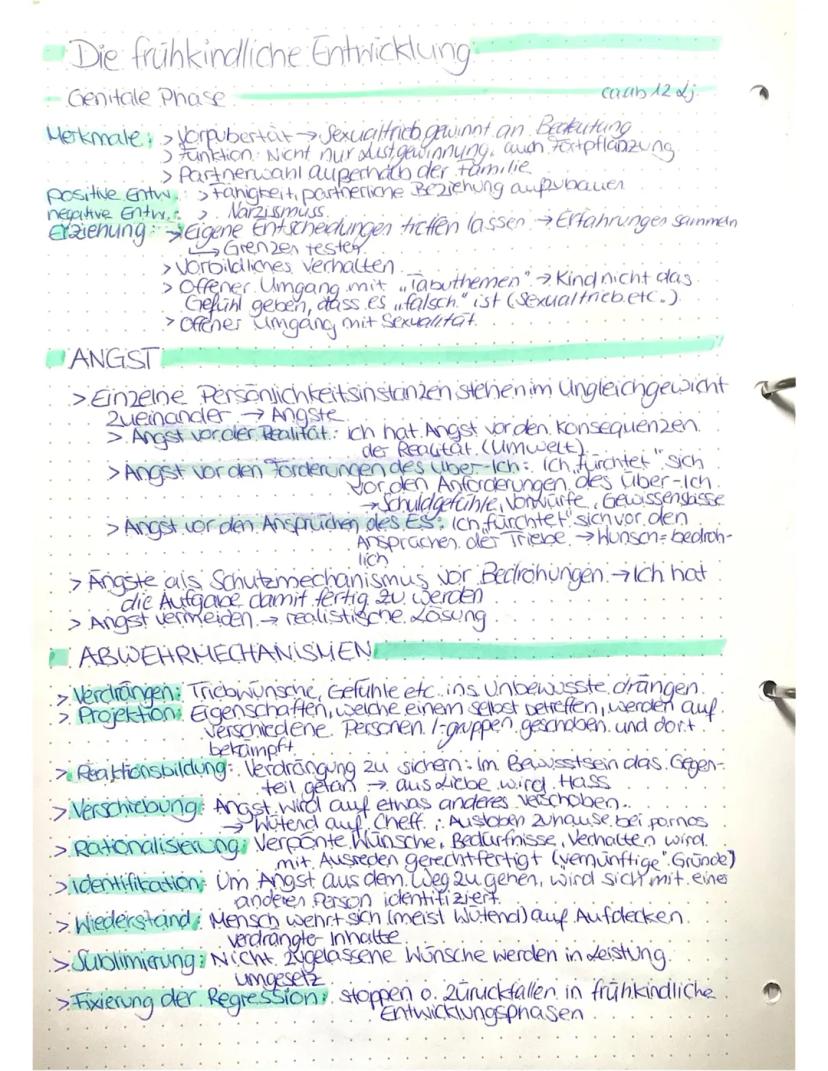 Die frühkindliche Entwicklung
Genitale Phase ca ab 12 Lj.
Merkmale: > Vorpubertät → Sexualtrieb gewinnt an Bedeutung
> Funktion: Nicht nur Lustgewinnung, auch Fortpflanzung
> Partnerwahl außerhalb der Familie
positive Entw.: > Fähigkeit, partnerliche Beziehung aufzubauen
negative Entw.: > Narzissmuss
Erziehung: → Eigene Entscheidungen treffen lassen → Erfahrungen sammeln
↳ Grenzen testen
> Vorbildliches Verhalten
> Offener Umgang mit „Tabuthemen" → Kind nicht das
Gefühl geben, dass es „falsch" ist (Sexualtrieb etc.)
> Offener Umgang mit Sexualität
ANGST
> Einzelne Persönlichkeitsinstanzen stehen im Ungleichgewicht
zueinander → Ängste
> Angst vor der Realität: ich hat Angst vor den Konsequenzen
der Realität (Umwelt)
> Angst vor den Forderungen des Über-Ich: Ich „fürchtet" sich
vor den Anforderungen des Über-Ich
→ Schuldgefühle, Vorwürfe, Gewissensbisse
> Angst vor den Ansprüchen des ES: Ich „fürchtet" sich vor den
Ansprüchen der Triebe → Wunsch = bedroh-
lich
> Ängste als Schutzmechanismus vor Bedrohungen → Ich hat
die Aufgabe damit fertig zu werden
> Angst vermeiden → realistische Lösung
ABWEHRMECHANISMEN
> Verdrängen: Triebwünsche, Gefühle etc. ins Unbewusste drängen
> Projektion: Eigenschaften, welche einem selbst betreffen, werden auf
verschiedene Personen /-gruppen geschoben und dort
bekämpft
> Reaktionsbildung: Verdrängung zu sichern: Im Bewusstsein das Gegen-
teil getan → aus Liebe wird Hass
> Verschiebung: Angst wird auf etwas anderes verschoben
→ Wütend auf Cheff : Austoben zuhause bei
> Rationalisierung: Verpönte Wünsche, Bedürfnisse, Verhalten wird
mit Ausreden gerechtfertigt („vernünftige" Gründe)
> Identifikation: Um Angst aus dem Weg zu gehen, wird sich mit einer
anderen Person identifiziert
> Wiederstand: Mensch wehrt sich (meist wütend) auf Aufdecken
verdrängter Inhalte
> Sublimierung: Nicht zugelassene Wünsche werden in Leistung
umgesetz
> Fixierung der Regression: stoppen o. zürückfallen in frühkindliche
Entwicklungsphasen